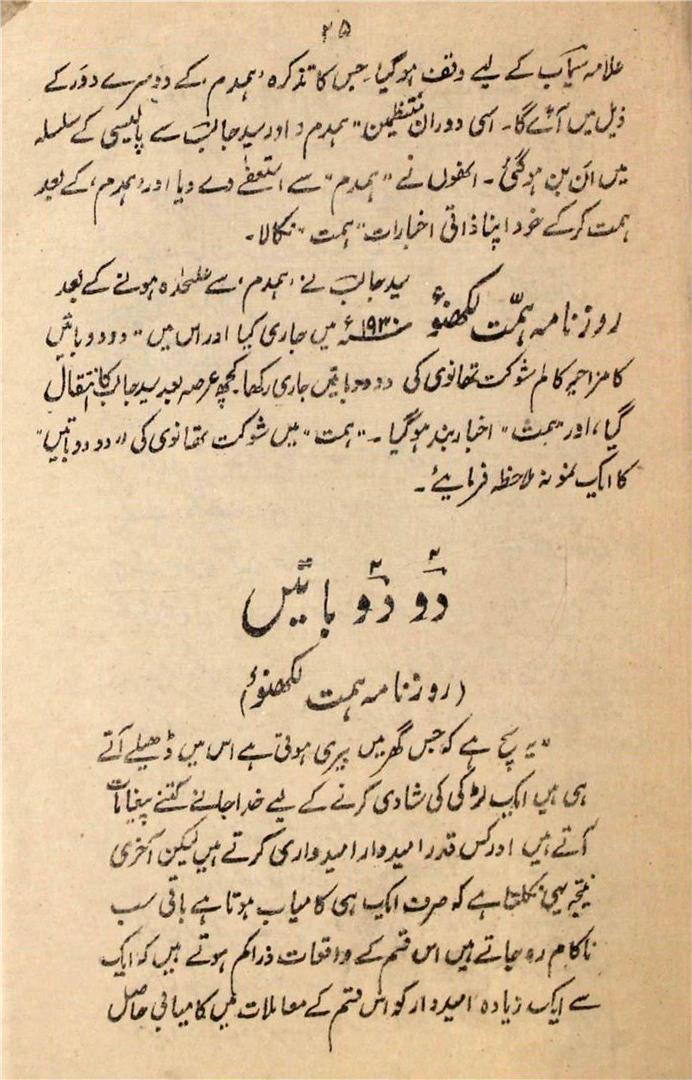 ۲۵
علامہ سیماب کے لیے وقف ہوگیا جس کا تذکرہ 'ہمدم' کے دوسرے دور کے
ذیل میں آئے گا۔ اسی دوران منتظمین "ہمدم" اور سید جالب سے پالیسی کے سلسلہ
میں ان بن ہوگئی۔ انھوں نے "ہمدم" سے استعفےٰ دے دیا اور 'ہمدم' کے بعد
ہمت کرکے خود اپنا ذاتی اخبارات "ہمت" نکالا۔
سید جالب نے 'ہمدم' سے علٰحدہ ہونے کے بعد
روزنامہ ہمّت لکھنؤ ۱۹۳۰ء میں جاری کیا اور اس میں "دو دو باتیں
کا مزاحیہ کالم شوکت تھانوی کی دو دو باتیں جاری رکھا۔ کچھ عرصہ بعد سید جالب کا انتقال
گیا، اور "ہمت" اخبار بند ہوگیا۔ "ہمت" میں شوکت تھانوی کی "دو دو باتیں"
کا ایک نمونہ ملاحظہ فرمایئے۔
دو دو باتیں
(روزنامہ ہمت لکھنؤ)
"یہ سچ ہے کہ جس گھر میں بیری ہوتی ہے اس میں ڈھیلے آتے
ہی ہیں ایک لڑکی کی شادی کرنے کے لیے خدا جانے کتنے پیغامات
آتے ہیں اور کس قدر امیدوار امیدواری کرتے ہیں لیکن آخری
نتیجہ یہی نکلتا ہے کہ صرف ایک ہی کامیاب ہوتا ہے باقی سب
ناکام رہ جاتے ہیں اس قسم کے واقعات ذرا کم ہوتے ہیں کہ ایک
سے ایک زیادہ امیدوار کو اس قسم کے معاملات میں کامیابی حاصل